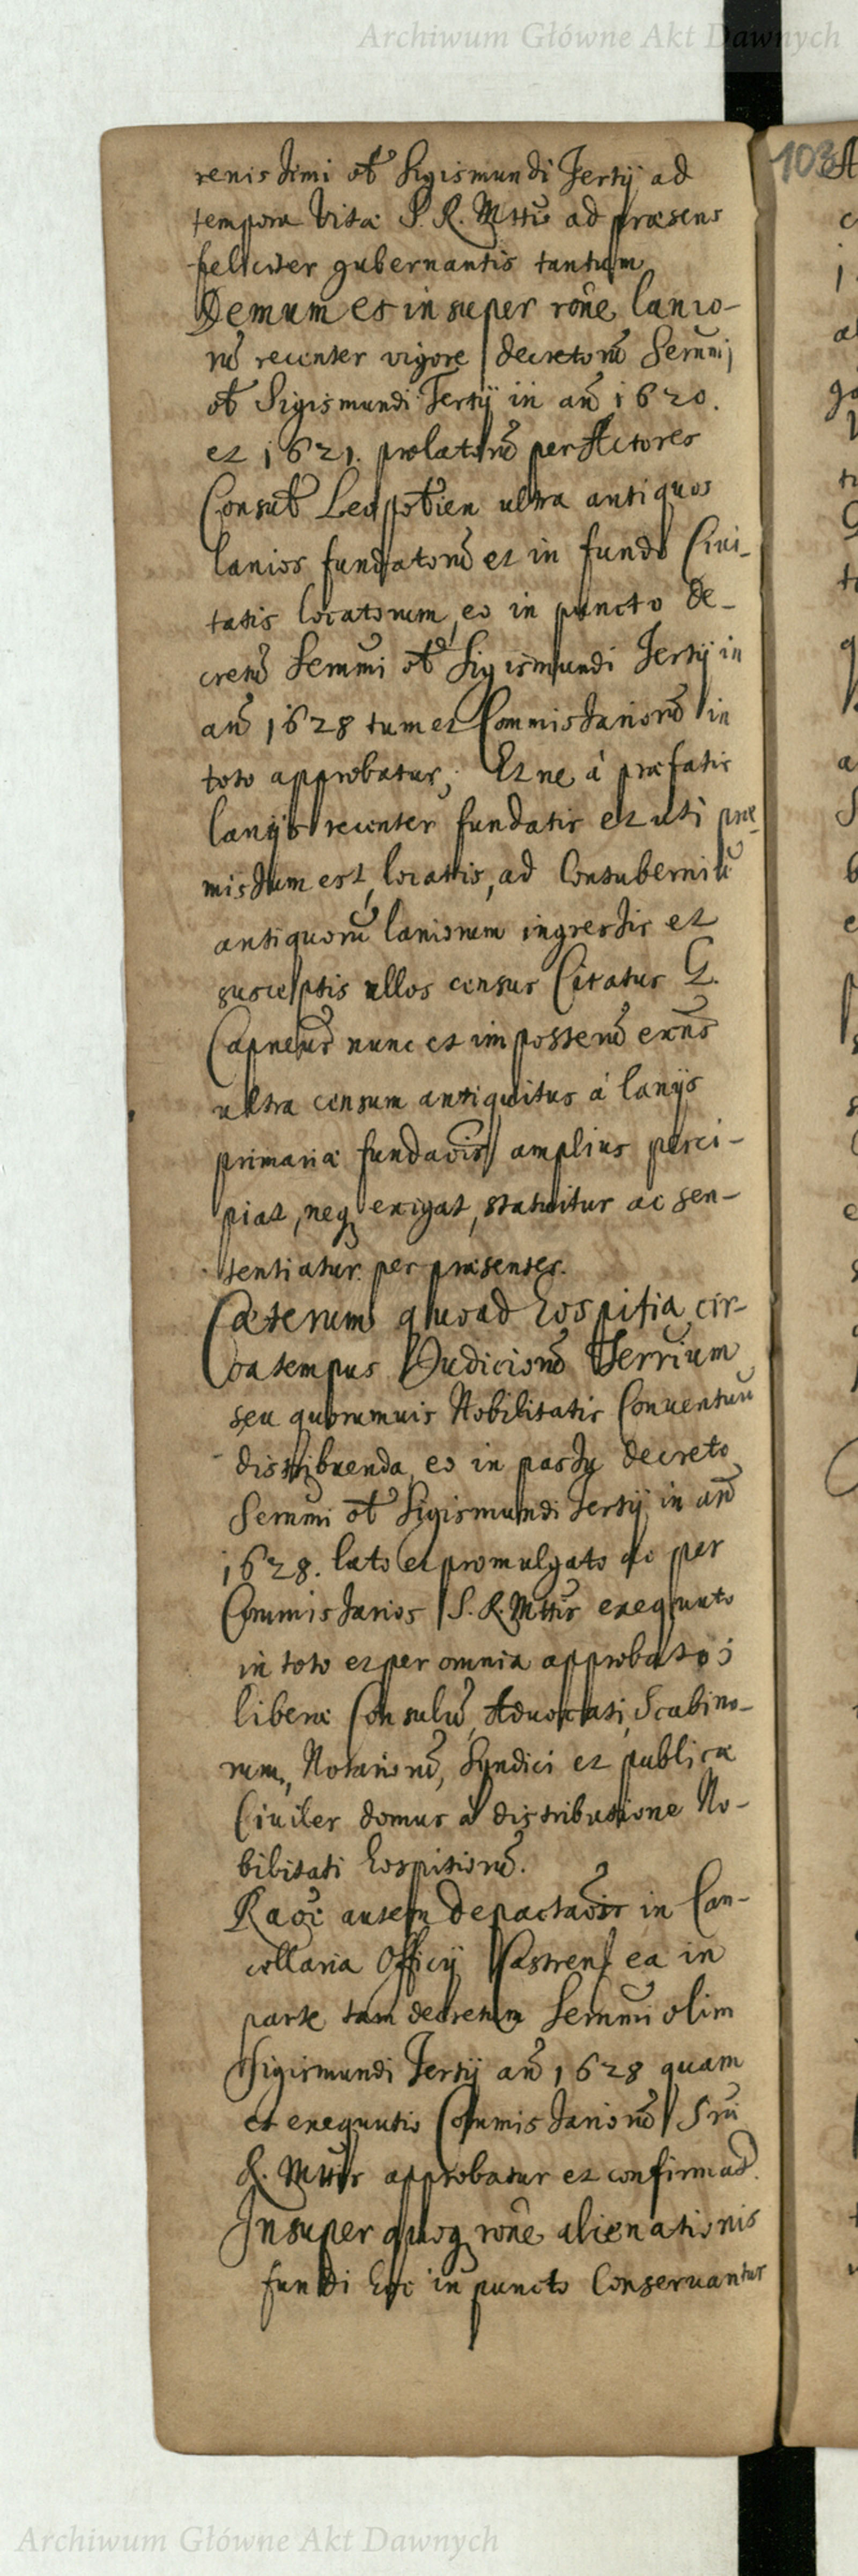 Archiwum Główne Akt Dawnych
103
renissimi ol̃ Sigismundi Tertÿ ad
tempora vitæ S. R. Mttis ad præsens
feliciter gubernantis tantum
Demum et insuper rõne lanio-
rũ recenter vigore decretorũ Sermi
ol̃ Sigismundi Tertÿ in añ 1620.
et 1621. prolatorũ per Actores
Consul̃ Leopol̃ien ultra antiquos
lanios fundatorũ et in fundo Civi-
tatis locatorum, eo in puncto De-
cretũ Sermi ol̃ Sigismundi Tertÿ in
añ 1628 tum et Commissariorũ in
toto approbatur; Et ne à præfatis
lanÿs recenter fundatis et uti præ-
missum est, locatis, ad Contuberniũ
antiquorũ laniorum ingressis et
susceptis ullos census Citatus G.
Capneus nunc et im posterũ exñs
ultra censum antiquitus à lanÿs
primariæ fundaõis amplius perci-
piat, neq exigat, statuitur ac sen-
tentiatur per præsentes.
Cæterum quoad hospitia cir-
ca tempus Judiciorũ Terrium
seu quorumuis Nobilitatis Conuentuũ
distribuenda, eo in passu decreto
Sermi ol̃ Sigismundi Tertÿ in añ
1628. lato et promulgato ac per
Commissarios S. R. Mttis exequuto
in toto et per omnia approbato;
liberæ Consulũ, Aduocati, Scabino-
rum, Notariorũ, Syndici et publicæ
Ciuiles domus à distributione No-
bilitati hospitiorũ.
Raõe autem depactaõis in Can-
cellaria Officÿ Castren ea in
parte tam decretum Sermi olim
Sigismundi Tertÿ añ 1628 quam
et exequutio Commissariorũ Sræ
R. Mttis approbatur et confirmat.
Insuper quoq rõne alienationis
fundi hoc in puncto Conseruantur
Archiwum Główne Akt Dawnych